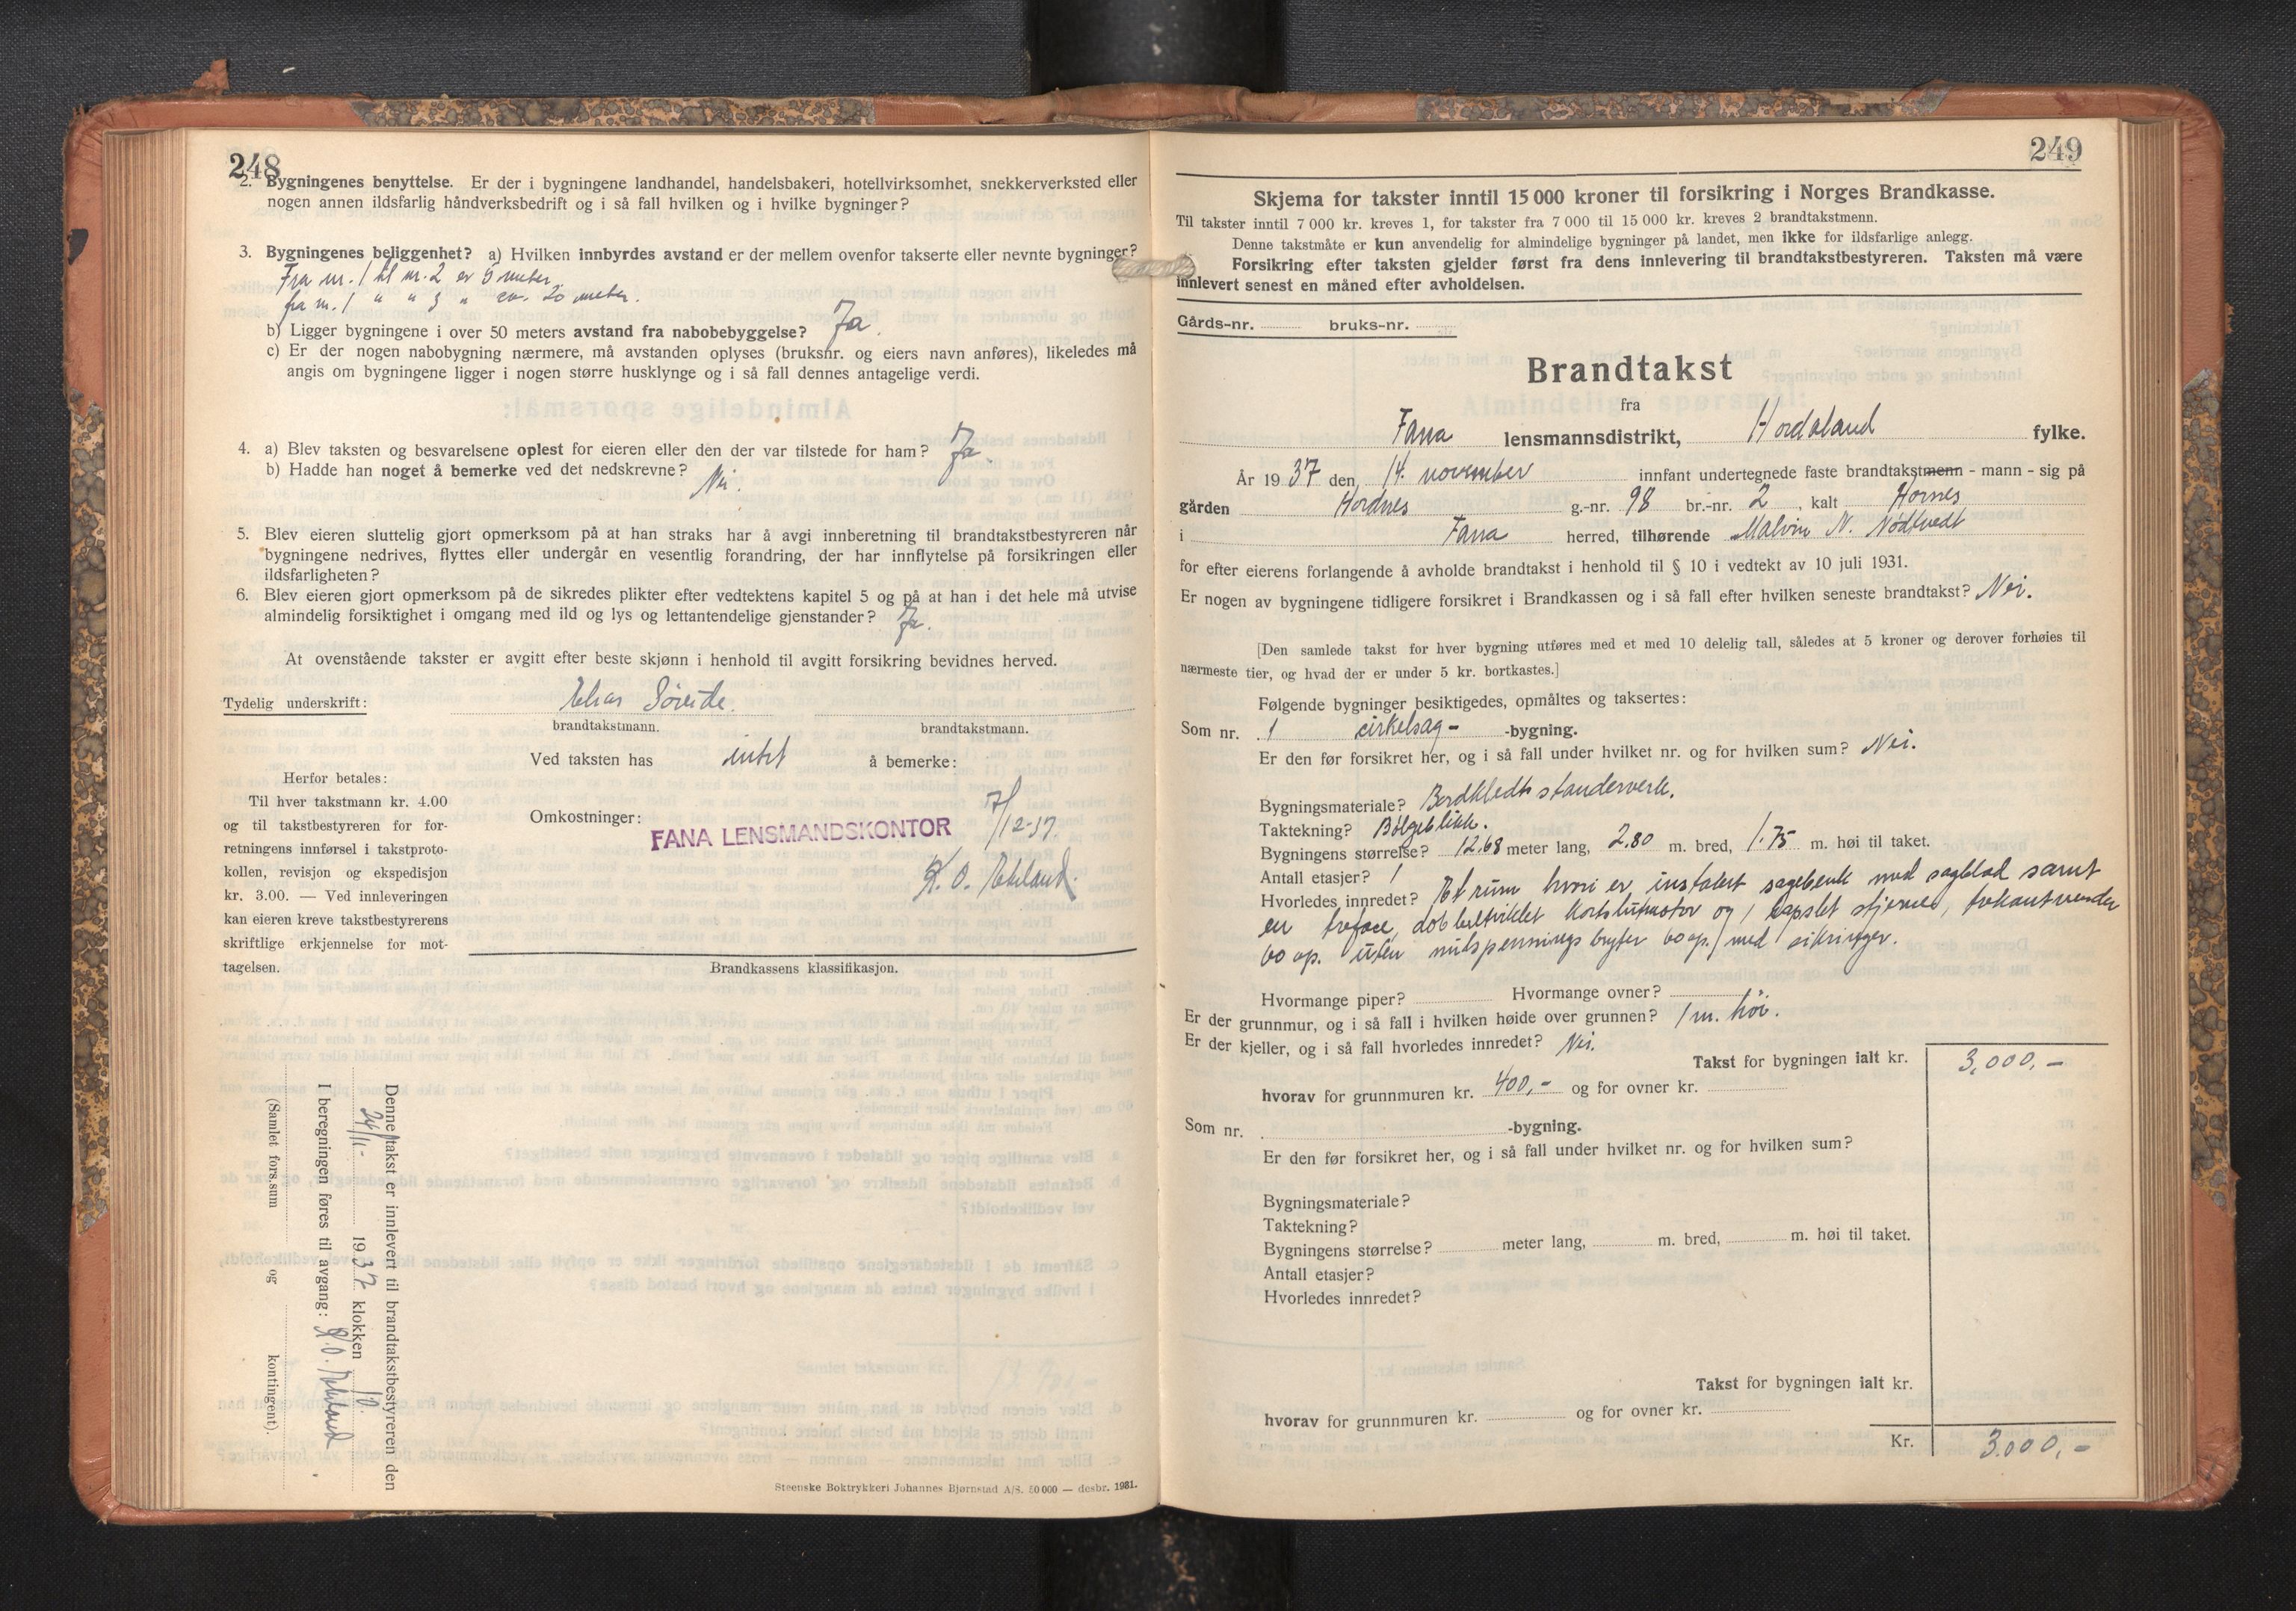 248
2. Bygningenes benyttelse. Er der i bygningene landhandel, handelsbakeri, hotellvirksomhet, snekkerverksted eller
nogen annen ildsfarlig håndverksbedrift og i så fall hvilken og i hvilke bygninger?
3. Bygningenes beliggenhet? a) Hvilken innbyrdes avstand er der mellem ovenfor takserte eller nevnte bygninger?
Fra nr. 1 til nr. 2 er 5 meter
fra nr. 1 " " 3 " ca. 20 meter.
b) Ligger bygningene i over 50 meters avstand fra nabobebyggelse? Ja.
c) Er der nogen nabobygning nærmere, må avstanden oplyses (bruksnr. og eiers navn anføres), likeledes må
angis om bygningene ligger i nogen større husklynge og i så fall dennes antagelige verdi.
4. a) Blev taksten og besvarelsene oplest for eieren eller den der var tilstede for ham? Ja.
b) Hadde han noget å bemerke ved det nedskrevne? Nei.
5. Blev eieren sluttelig gjort opmerksom på at han straks har å avgi innberetning til brandtakstbestyreren når
bygningene nedrives, flyttes eller undergår en vesentlig forandring, der har innflytelse på forsikringen eller
ildsfarligheten?
6. Blev eieren gjort opmerksom på de sikredes plikter efter vedtektens kapitel 5 og på at han i det hele må utvise
almindelig forsiktighet i omgang med ild og lys og lettantendelige gjenstander? Ja.
At ovenstående takster er avgitt efter beste skjønn i henhold til avgitt forsikring bevidnes herved.
Tydelig underskrift: Elias Søreide.
brandtakstmann. brandtakstmann.
Ved taksten has intet å bemerke:
Herfor betales:
Til hver takstmann kr. 4.00
og til takstbestyreren for for-
retningens innførsel i takstproto-
kollen, revisjon og ekspedisjon
kr. 3.00. — Ved innleveringen
kan eieren kreve takstbestyrerens
skriftlige erkjennelse for mot-
tagelsen.
Omkostninger:
FANA LENSMANDSKONTOR 7/12-37.
Brandkassens klassifikasjon.
Denne takst er innlevert til brandtakstbestyreren den
24/11- 1937 klokken 10.
I beregningen føres til avgang:
(Samlet fors.sum og kontingent).
Steenske Boktrykkeri Johannes Bjørnstad A/S. 50 000 — desbr. 1931.
249
Skjema for takster inntil 15 000 kroner til forsikring i Norges Brandkasse.
Til takster inntil 7 000 kr. kreves 1, for takster fra 7 000 til 15 000 kr. kreves 2 brandtakstmenn.
Denne takstmåte er kun anvendelig for almindelige bygninger på landet, men ikke for ildsfarlige anlegg.
Forsikring efter taksten gjelder først fra dens innlevering til brandtakstbestyreren. Taksten må være
innlevert senest en måned efter avholdelsen.
Gårds-nr. bruks-nr.
Brandtakst
fra
Fana lensmannsdistrikt, Hordaland fylke.
År 1937 den, 14. november innfant undertegnede faste brandtakstmenn - mann - sig på
gården Hordnes g.-nr. 98 br.-nr. 2, kalt Hornes
i Fana herred, tilhørende Malvin N. Nødtvedt
for efter eierens forlangende å avholde brandtakst i henhold til § 10 i vedtekt av 10 juli 1931.
Er nogen av bygningene tidligere forsikret i Brandkassen og i så fall efter hvilken seneste brandtakst? Nei.
[Den samlede takst for hver bygning utføres med et med 10 delelig tall, således at 5 kroner og derover forhøies til
nærmeste tier, og hvad der er under 5 kr. bortkastes.]
Følgende bygninger besiktigedes, opmåltes og taksertes:
Som nr. 1 cirkelsag- -bygning.
Er den før forsikret her, og i så fall under hvilket nr. og for hvilken sum? Nei.
Bygningsmateriale? Bordkledt standerverk.
Taktekning? Bølgeblikk.
Bygningens størrelse? 12.68 meter lang, 2.80 m. bred, 1.75 m. høi til taket.
Antall etasjer? 1
Hvorledes innredet? Et rum hvori er instalert sagbenk med sagblad samt
en trefase, dobbeltviklet Kortslutmotor og 1 kapslet stjerne, trekantvender
60 ap. uten nulspenningsbryter 60 ap. med sikringer.
Hvormange piper? Hvormange ovner?
Er der grunnmur, og i så fall i hvilken høide over grunnen? 1 m. høi.
Er der kjeller, og i så fall hvorledes innredet? Nei.
Takst for bygningen ialt kr. 3,000,-
hvorav for grunnmuren kr. 400,- og for ovner kr.
Som nr. -bygning.
Er den før forsikret her, og i så fall under hvilket nr. og for hvilken sum?
Bygningsmateriale?
Taktekning?
Bygningens størrelse? meter lang, m. bred, m. høi til taket.
Antall etasjer?
Hvorledes innredet?
Takst for bygningen ialt kr.
hvorav for grunnmuren kr. og for ovner kr.
Kr. 3.000,-